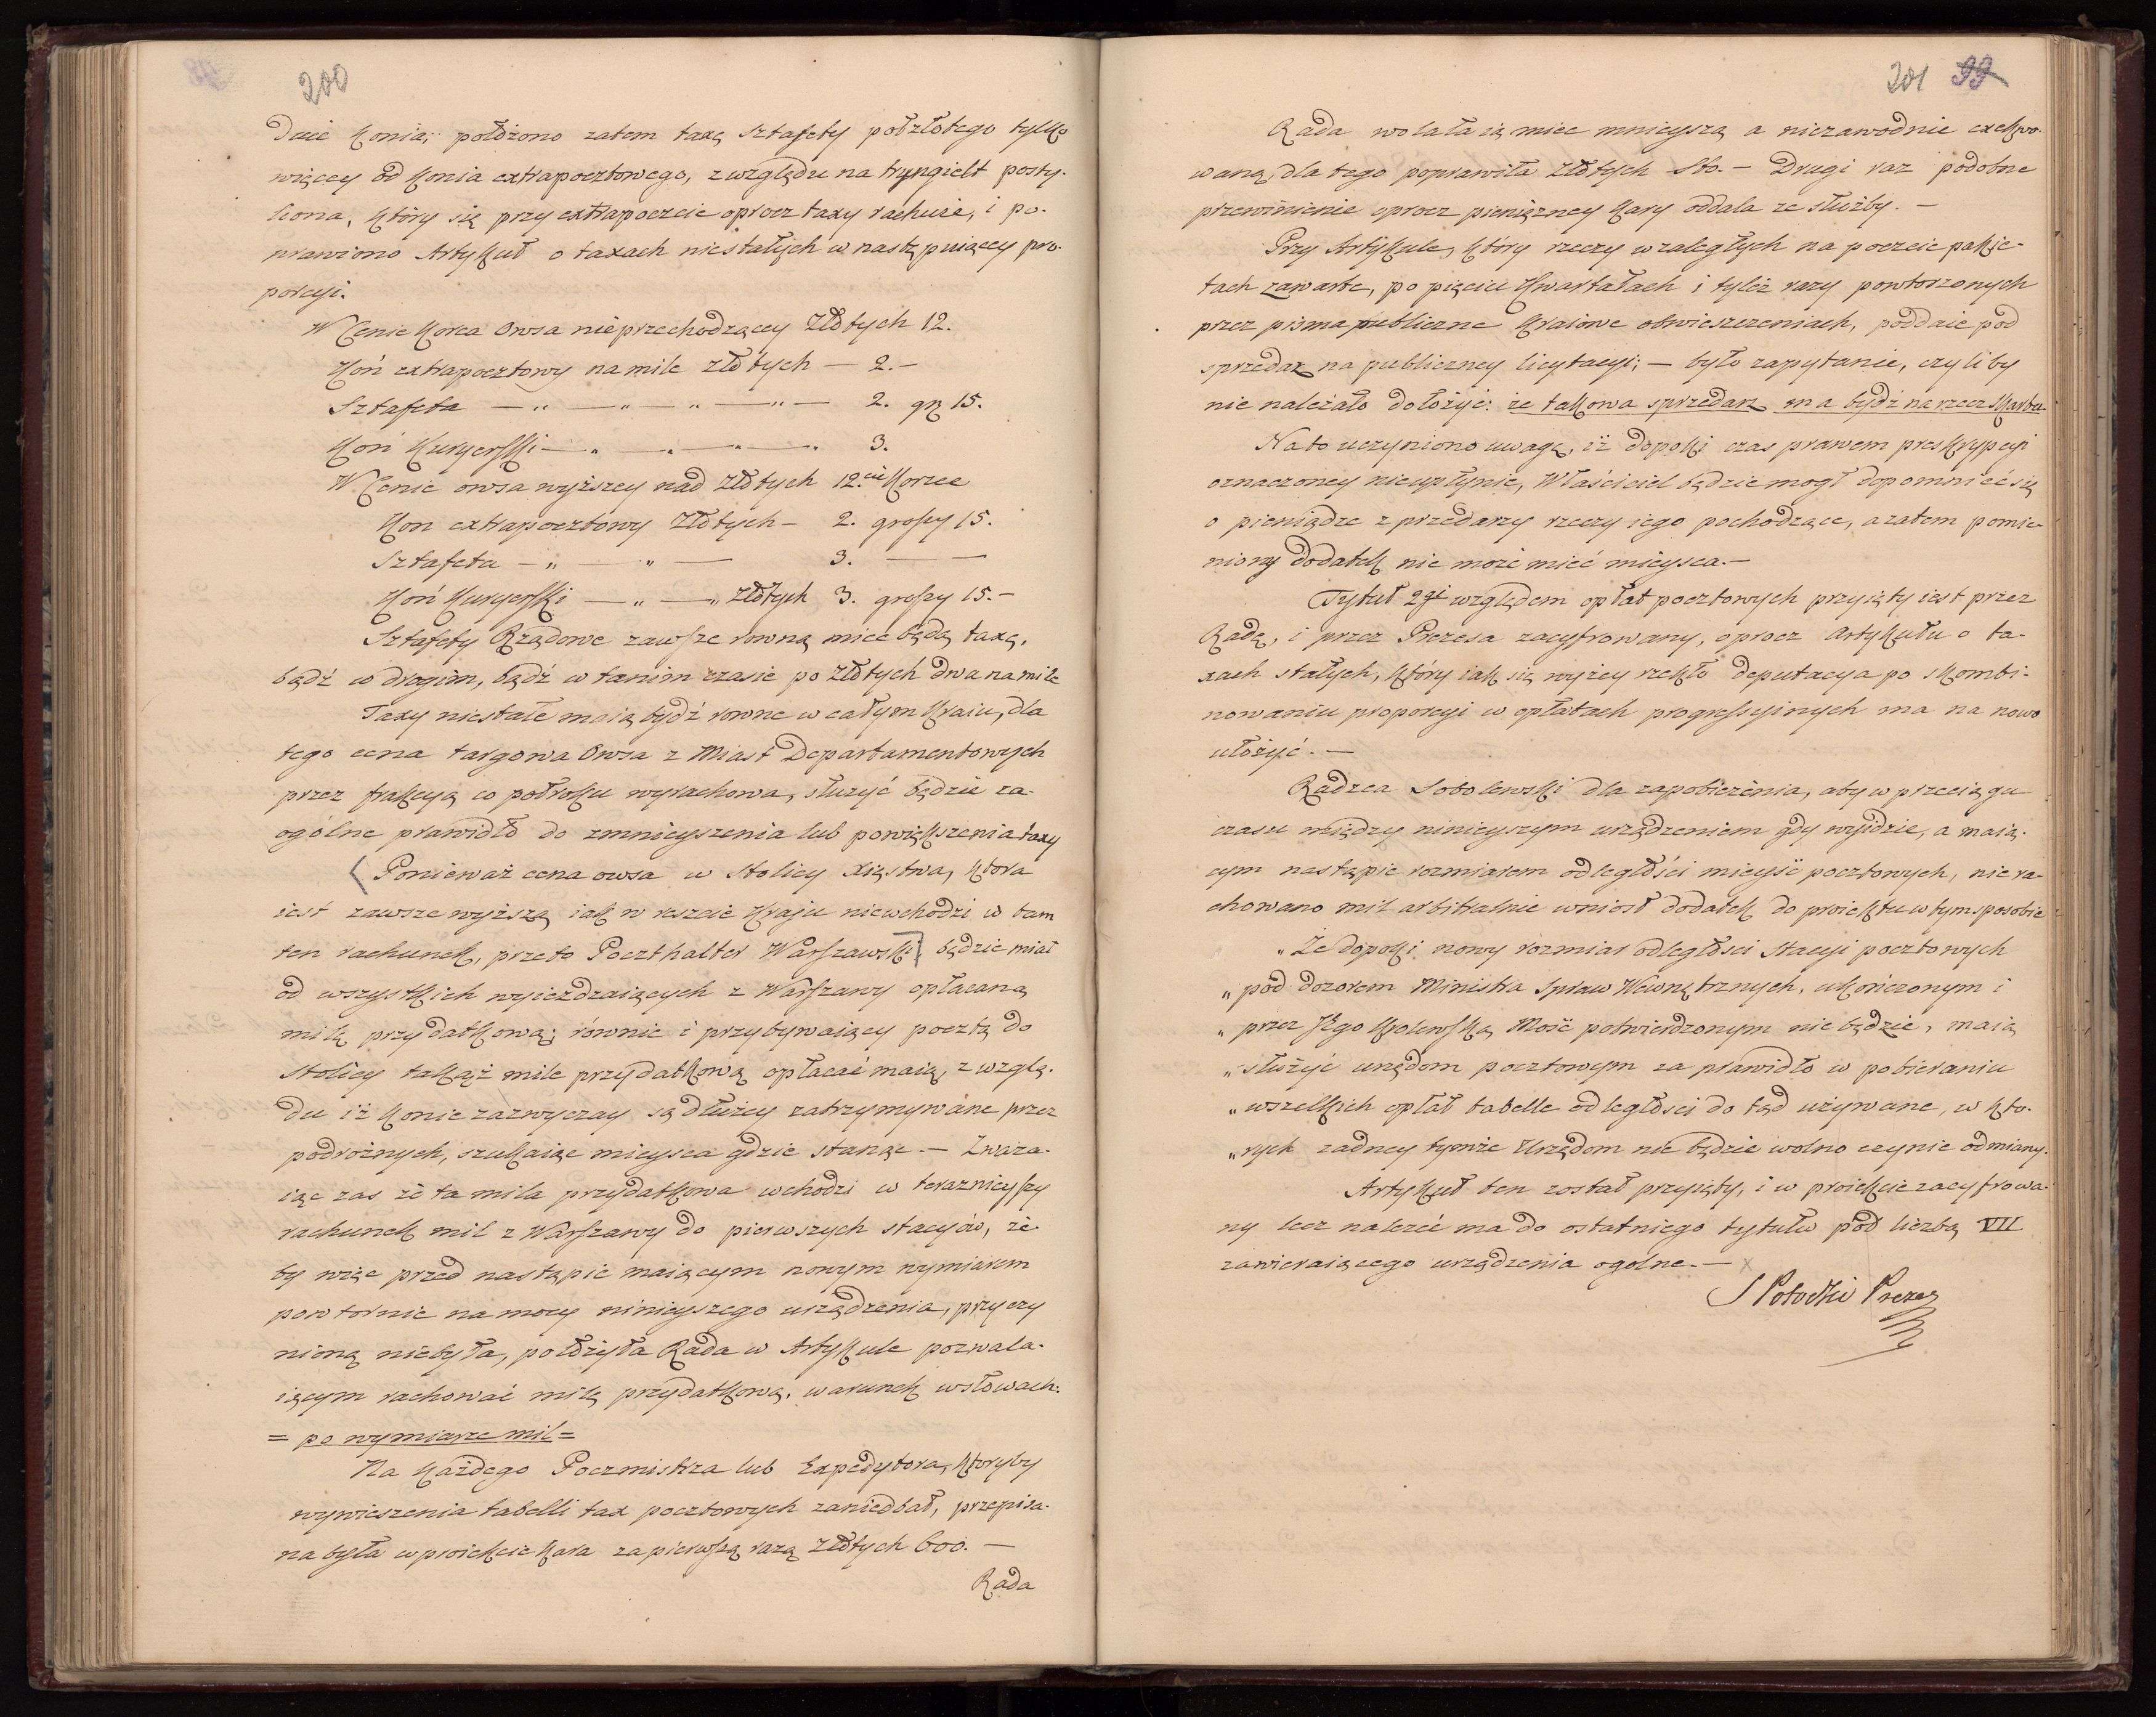 200
dzie konia; położono zatem taxę Sztafety półzłotego tylko
więcey od konia extrapocztowego, z względu na tryngielt posty-
liona, który się przy extrapoczcie oprocz taxy rachuie, i po-
prawiono Artykuł o taxach niestałych w następuiącey pro-
porcyi.
W Cenie Korca Owsa nieprzechodzącey Złotych 12.
Koń extrapocztowy na mile złotych — 2.—
Sztafeta — " — " — " — " — 2. gr 15.
Koń Kuryerski — " — " — " — " 3.
W Cenie owsa wyższey nad Złotych 12.cie Korzec
Kon extrapocztowy Złotych — 2. groszy 15.
Sztafeta — " — " — 3. —
Koń Kuryerski — " — " Złotych 3. groszy 15.—
Sztafety Rządowe zawsze rowną miec będą taxę,
bądź w drogim, bądź w tanim czasie po Złotych dwa na mile
Taxy niestałe maią bydź rowne w całym kraiu, dla
tego cena targowa Owsa z Miast Departamentowych
przez frakcyą co połroku wyrachowa, służyć będzie za
ogólne prawidło do zmnieyszenia lub powiększenia taxy
(Ponieważ cena owsa w stolicy Xięstwa, ktora
iest zawsze wyższą iak w reszcie Kraju niewchodzi w tam
ten rachunek, przeto Poczthalter Warszawski] będzie miał
od wszystkich wyieżdzaiących z Warszawy opłacaną
milę przydatkową; równie i przybywaiący pocztą do
stolicy takąż mile przydatkową opłacać maią, z wzglę-
du iż konie zazwyczay są dłużey zatrzymywane przez
podrożnych, szukaiąc mieysca gdzie stanąc — Zwaza-
iąc zas że ta mila przydatkowa wchodzi w teraznieyszy
rachunek mil z Warszawy do pierwszych stacyów, że-
by więc przed nastąpic maiącym nowym wymiarem
powtornie na mocy ninieyszego urządzenia, przyczy
nioną niebyła, położyła Rada w Artykule pozwala-
iącym rachować milę przydatkową, warunek w słowach:
= po wymiarze mil =
Na każdego Poczmistrza lub Expedytora, ktoryby
wywieszenia tabelli tax pocztowych zaniedbał, przepisa-
na była w proiekcie kara za pierwszą razą Złotych 600. —
Rada
201 99
Rada wolała ią miec mnieyszą a niezawodnie exekwo-
waną, dla tego poprawiła Złotych Sto. — Drugi raz podobne
przewinienie oprocz pieniężney kary oddala ze służby. —
Przy Artykule, który rzeczy w zaległych na poczcie pakie-
tach zawarte, po pięciu Kwartałach i tyleż razy powtorzonych
przez pisma publiczne kraiowe obwieszczeniach, poddaie pod
sprzedaż na publiczney licytacyi; — było zapytanie, czyliby
nie należało dołożyć: że takowa sprzedarz ma bydź na rzecz Skarbu.
Na to uczyniono uwagę, iż dopoki czas prawem preskrypcyi
oznaczoney nieupłynie, Właściciel będzie mogł dopomnieć się
o pieniądze z przedarzy rzeczy iego pochodzące, a zatem pomie-
niony dodatek nie może mieć mieysca. —
Tytuł 2gi względem opłat pocztowych przyięty iest przez
Radę, i przez Prezesa zacyfrowany, oprocz artykułu o ta-
xach stałych, który iak się wyżey rzekło deputacya po skombi-
nowaniu proporcyi w opłatach progressyinych ma na nowo
ułożyć. —
Radzca Sobolewski dla zapobieżenia, aby w przeciągu
czasu między ninieyszym urządzeniem gdy wyidzie, a maią-
cym nastąpic rozmiarem odległości mieysc pocztowych, niera-
chowano mil arbitralnie wniosł dodatek do proiektu w tym sposobie
"Że dopoki nowy rozmiar odległosci Stacyi pocztowych
"pod dozorem Ministra Spraw Wewnętrznych, ukończonym i
"przez Jego Krolewską Mość potwierdzonym nie będzie, maią
"służyć urzędom pocztowym za prawidło w pobieraniu
"wszelkich opłat tabelle odległosci do tąd używane, w kto-
"rych zadney tymże Urzędom nie będzie wolno czynic odmiany.
Artykuł ten został przyięty, i w proiekcie zacyfrowa-
ny lecz należeć ma do ostatniego tytułu pod liczbą VII
zawieraiącego urządzenia ogolne. —
S Potocki Prezes